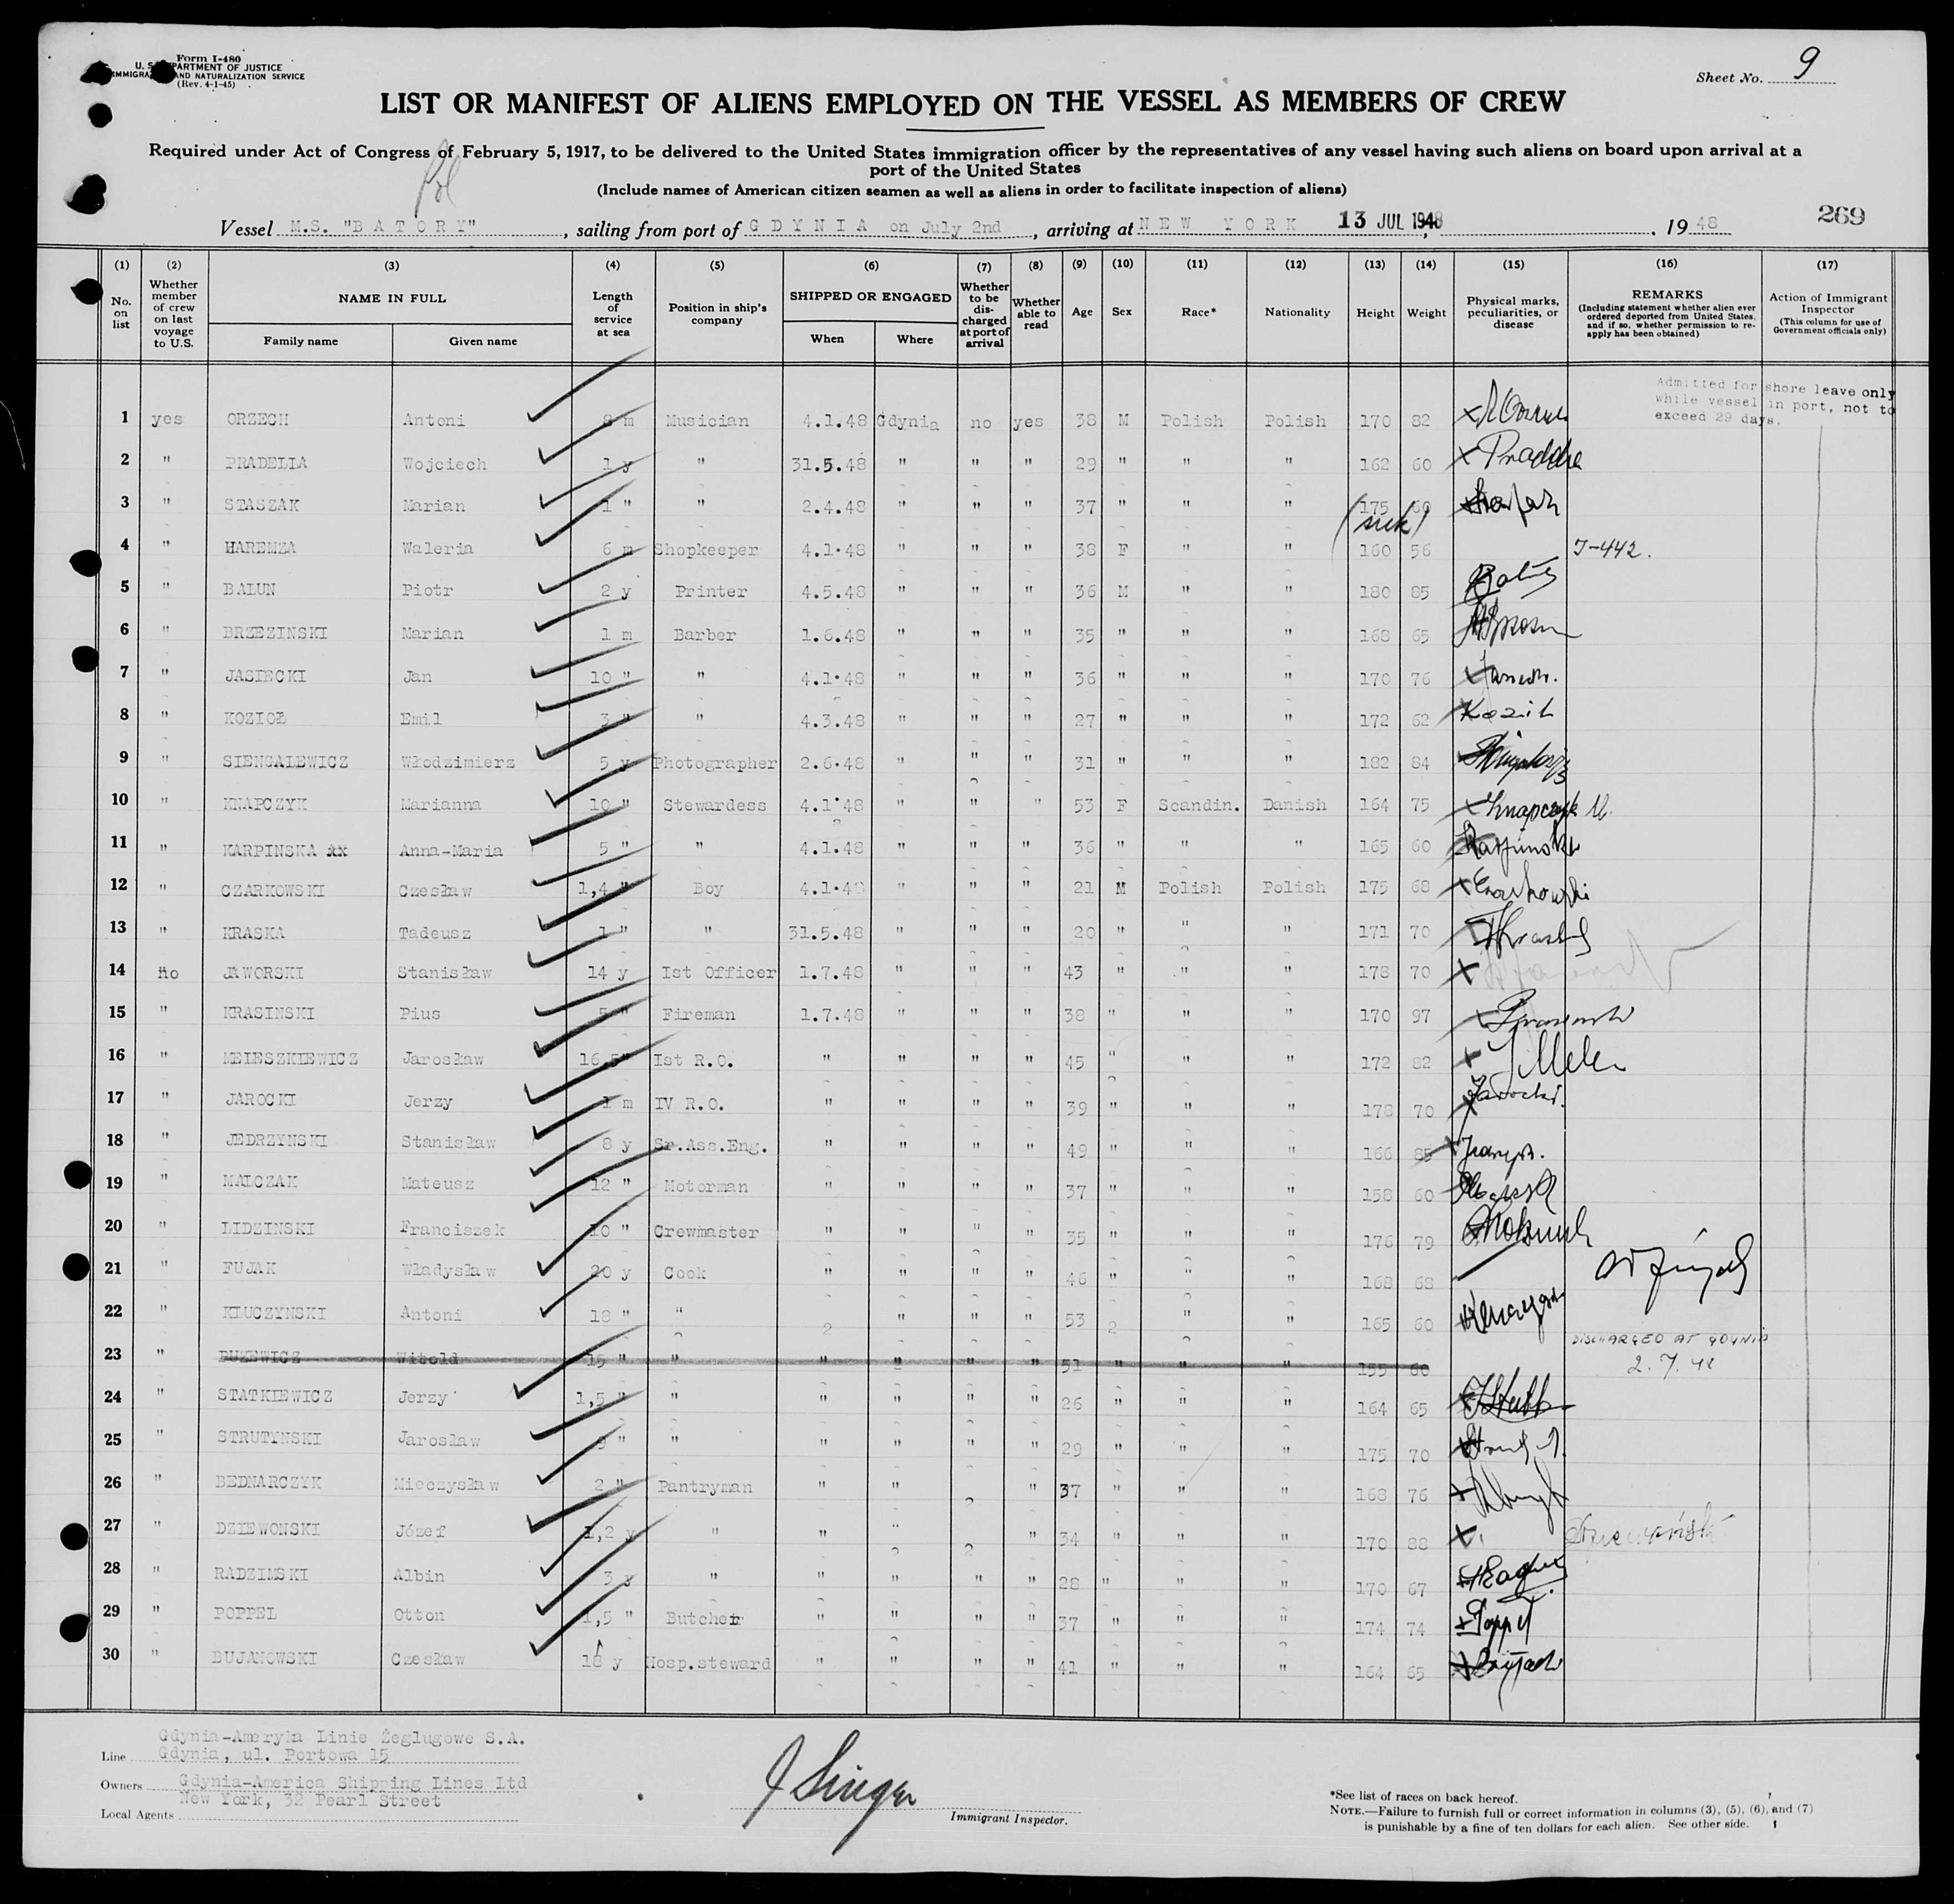 Form I-480
U. S. DEPARTMENT OF JUSTICE
IMMIGRATION AND NATURALIZATION SERVICE
(Rev. 4-1-45)
Sheet No. 9
LIST OR MANIFEST OF ALIENS EMPLOYED ON THE VESSEL AS MEMBERS OF CREW
Required under Act of Congress of February 5, 1917, to be delivered to the United States immigration officer by the representatives of any vessel having such aliens on board upon arrival at a
port of the United States
(Include names of American citizen seamen as well as aliens in order to facilitate inspection of aliens)
Pol
Vessel M.S. "BATORY", sailing from port of GDYNIA on July 2nd, arriving at NEW YORK 13 JUL 1948, 1948
269
(1) (2) (3) (4) (5) (6) (7) (8) (9) (10) (11) (12) (13) (14) (15) (16) (17)
No. on list
Whether member of crew on last voyage to U.S.
NAME IN FULL
Family name Given name
Length of service at sea
Position in ship's company
SHIPPED OR ENGAGED
When Where
Whether to be discharged at port of arrival
Whether able to read
Age Sex Race* Nationality Height Weight
Physical marks, peculiarities, or disease
REMARKS
(Including statement whether alien ever ordered deported from United States, and if so, whether permission to reapply has been obtained)
Action of Immigrant Inspector
(This column for use of Government officials only)
Admitted for shore leave only
while vessel in port, not to
exceed 29 days.
1 yes ORZECH Antoni 8 m Musician 4.1.48 Gdynia no yes 38 M Polish Polish 170 82
2 " PRADELLA Wojciech 1 y " 31.5.48 " " " 29 " " " 162 60
3 " STASZAK Marian 1 " " 2.4.48 " " " 37 " " " 175 60
(sick)
4 " HAREMZA Waleria 6 m Shopkeeper 4.1.48 " " " 38 F " " 160 56 I-442.
5 " BALUN Piotr 2 y Printer 4.5.48 " " " 36 M " " 180 85
6 " BRZEZINSKI Marian 1 m Barber 1.6.48 " " " 35 " " " 168 65
7 " JASIECKI Jan 10 " " 4.1.48 " " " 36 " " " 170 76
8 " KOZIOŁ Emil 3 " " 4.3.48 " " " 27 " " " 172 62
9 " SIENGALEWICZ Włodzimierz 5 y Photographer 2.6.48 " " " 31 " " " 182 84
10 " KNAPCZYK Marianna 10 " Stewardess 4.1.48 " " " 53 F Scandin. Danish 164 75 Knapczyk M.
11 " KARPINSKA Anna-Maria 5 " " 4.1.48 " " " 36 " " " 165 60
12 " CZARKOWSKI Czesław 1,4 " Boy 4.1.48 " " " 21 M Polish Polish 175 68 Czarkowski
13 " KRASKA Tadeusz 1 " " 31.5.48 " " " 20 " " " 171 70
14 no JAWORSKI Stanisław 14 y Ist Officer 1.7.48 " " " 43 " " " 178 70
15 " KRASINSKI Pius 5 " Fireman 1.7.48 " " " 38 " " " 170 97
16 " MEIESZKIEWICZ Jarosław 16,5" Ist R.O. " " " " 45 " " " 172 82
17 " JAROCKI Jerzy 1 m IV R.O. " " " " 39 " " " 178 70 Jarocki.
18 " JEDRZYNSKI Stanisław 8 y Sr.Ass.Eng. " " " " 49 " " " 166 85
19 " MALCZAK Mateusz 12 " Motorman " " " " 37 " " " 158 60
20 " LIDZINSKI Franciszek 10 " Crewmaster " " " " 35 " " " 176 79
21 " FUJAK Władysław 20 y Cook " " " " 46 " " " 168 68
22 " KLUCZYNSKI Antoni 18 " " " " " 53 " " 165 60
23 " BUZEWICZ Witold 15 " " " " " " 51 " " " 155 60 DISCHARGED AT GDYNIA
2.7.48
24 " STATKIEWICZ Jerzy 1,5 " " " " " " 26 " " " 164 65
25 " STRUTYNSKI Jarosław 9 " " " " " " 29 " " " 175 70
26 " BEDNARCZYK Mieczysław 2 " Pantryman " " " 37 " " " 168 76
27 " DZIEWONSKI Józef 1,2 y " " " " 34 " " " 170 88 Dziewoński
28 " RADZIMSKI Albin 3 y " " " " " 28 " " " 170 67
29 " POPPEL Otton 1,5 " Butcher " " " " 37 " " " 174 74 Poppel
30 " BUJANOWSKI Czesław 18 y Hosp.steward " " " " 41 " " " 164 65
Line Gdynia-Ameryka Linie Żeglugowe S.A.
Gdynia, ul. Portowa 15
Owners Gdynia-America Shipping Lines Ltd
New York, 32 Pearl Street
Local Agents
J Singer
Immigrant Inspector.
*See list of races on back hereof.
NOTE.—Failure to furnish full or correct information in columns (3), (5), (6), and (7)
is punishable by a fine of ten dollars for each alien. See other side.